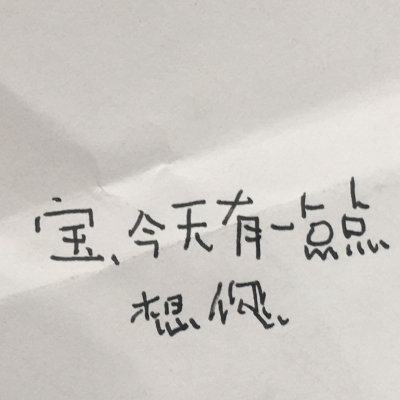 宝、今天有一点点
想您